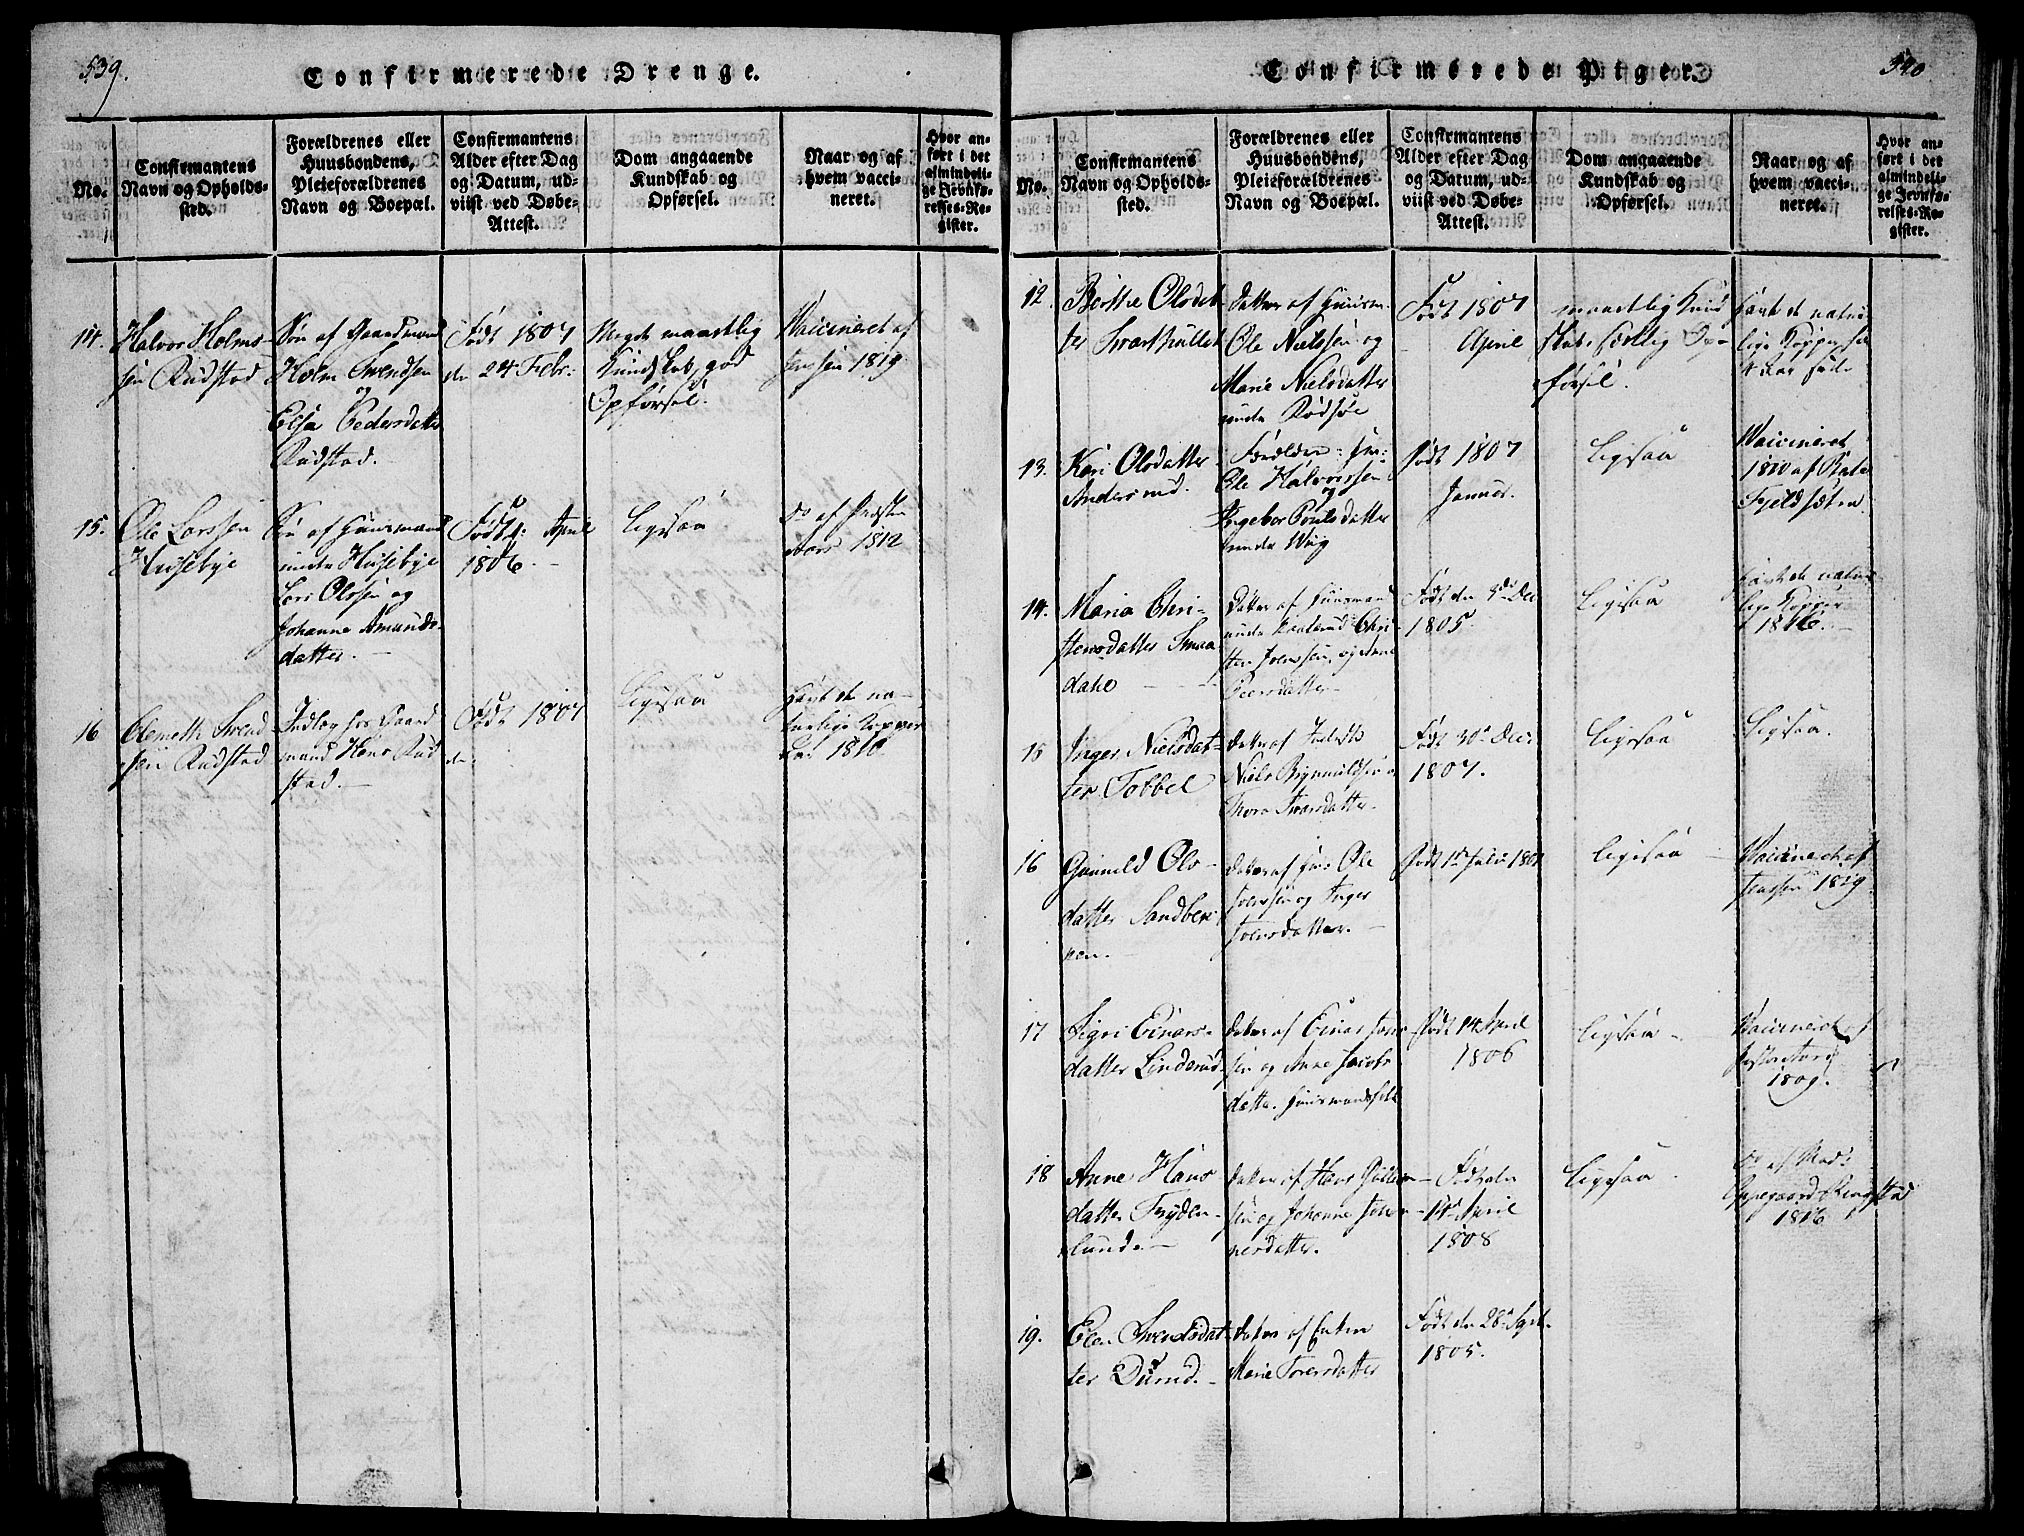 539.
Confirmerede Drenge.
No.
Confirmantens
Navn og Opholds-
sted.
Forældrenes eller
Huusbondens,
Pleieforældrenes
Navn og Boepæl.
Confirmantens
Alder efter Dag
og Datum, ud-
viist ved Døbe-
Attest.
Dom angaaende
Kundskab og
Opførsel.
Naar og af
hvem vacci-
neret.
Hvor an-
ført i det
almindeli-
ge Jevnfø-
relses-Re-
gister.
14.
Halvor Holms-
sen Rudstad
Søn af Gaardmand
Holm Svendsen
og
Elsa Pedersdatter
Rudstad.
Født 1807
den 24 Febr:
Meget maadelig
Kundskab, god
Opførsel.
Vaccineret af
Jensen 1819
15.
Ole Larssen
Husebye
Søn af Huusmand
under Husebye
Lars Olssen og
Johanne Amunds-
datter.
Født d: April
1806.
ligesaa
Do af Præsten
1812
16
Clemeth Svend
sen Rudstad
Hans Rud
stad.
Født 1807
d.
ligesaa
havt de na-
turlige Kopper
1810
540
Confirmerede Piger.
No.
Confirmantens
Navn og Opholds-
sted.
Forældrenes eller
Huusbondens,
Pleieforældrenes
Navn og Boepæl.
Confirmantens
Alder efter Dag
og Datum, ud-
viist ved Døbe-
Attest.
Dom angaaende
Kundskab og
Opførsel.
Naar og af
hvem vacci-
neret.
Hvor an-
ført i det
almindeli-
ge Jevnfø-
relses-Re-
gister.
12.
Berthe Olsdat
ter Svarthullet
Datter af Huusm.
Ole Nielssen og
Marie Nielsdatter
under Rødsøe
Født 1807
April
maadelig Kund
skab, sædelig Op-
førsel.
havt de natur
lige Kopper
13.
Kari Olsdatter
Andersrud.
Forældre:
Ole Halvorssen
og
Ingebor Poulsdatter
under Wiig
Født 1807
Januar.
ligesaa
Vaccineret
1810 af
Fjeldsæten.
14.
Maria Chri-
stensdatter Smaa
dahl
Datter af Huusmand
under Chri-
sten Joenssen og Anne
Peersdatter
Født den 3de Dec
1805.
ligesaa
havt de natur
lige Kopper
1816.
15
Inger Nielsdat-
ter Tobbel
Datter af
Niels
Thora Iversdatter.
Født 30te Dec:
1807.
ligesaa
ligesaa.
16
Gunnild Ols-
datter Sandber-
gen.
Datter af Ole
Joenssen og Inger
Joensdatter.
Født 1ste Julii 1807
ligesaa
Vaccineret af
Jenssen 1819
17
Sigri Einars-
datter Linderud
Datter af Einar Jons
sen og Anne Jacobs
datter. Huusmandsfolk
Født 14 April
1806
ligesaa
Vaccineret af
1809.
18
Anne Hans
datter Fryden-
lund.
Datter af Hans Gulbran
sen og Johanne Johan
nesdatter.
Født den
14de April
1808
ligesaa
Do af Mad:
Oppegaard Ringstad
1816
19.
Elen Svendsdat
ter Durud.
Datter af Enken
Marie Toresdatter
Født den 28de Sept.
1805.